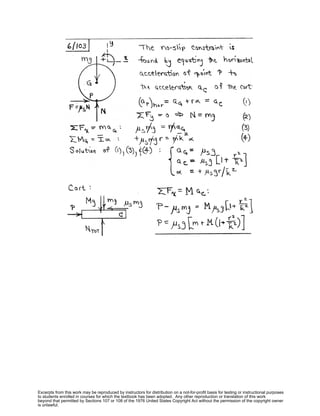 6/103
y
x
mg
G
P
F=μₛN
N
The no-slip constraint is
found by equating the horizontal
acceleration of point P to
the acceleration a_c of the cart
(a_P)hor = a_G + rα = a_c (1)
ΣF_y = 0 ⇒ N = mg (2)
ΣF_x = ma_G : μₛmg = ma_G (3)
ΣM_G = Īα : +μₛmgr = mk̄²α (4)
Solution of (1), (3), & (4) : { a_G = μₛg
a_c = μₛg[1 + r²/k̄²]
α = + μₛgr/k̄²
Cart :
Mg
mg
μₛmg
P
C
N_TOT
ΣF_x = M a_c :
P - μₛmg = Mμₛg[1 + r²/k̄²]
P = μₛg[m + M(1 + r²/k̄²)]
Excerpts from this work may be reproduced by instructors for distribution on a not-for-profit basis for testing or instructional purposes
to students enrolled in courses for which the textbook has been adopted. Any other reproduction or translation of this work
beyond that permitted by Sections 107 or 108 of the 1976 United States Copyright Act without the permission of the copyright owner
is unlawful.